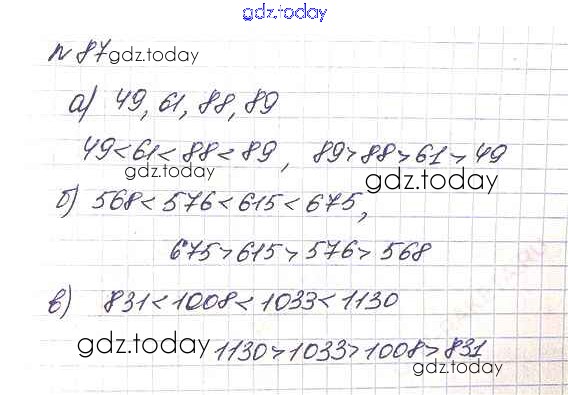 gdz.today
№ 87 gdz.today
а) 49, 61, 88, 89
49<61<88<89, 89>88>61>49
gdz.today gdz.today
б) 568<576<615<675,
675>615>576>568
в) 831<1008<1033<1130
gdz.today 1130>1033>1008>831
gdz.today